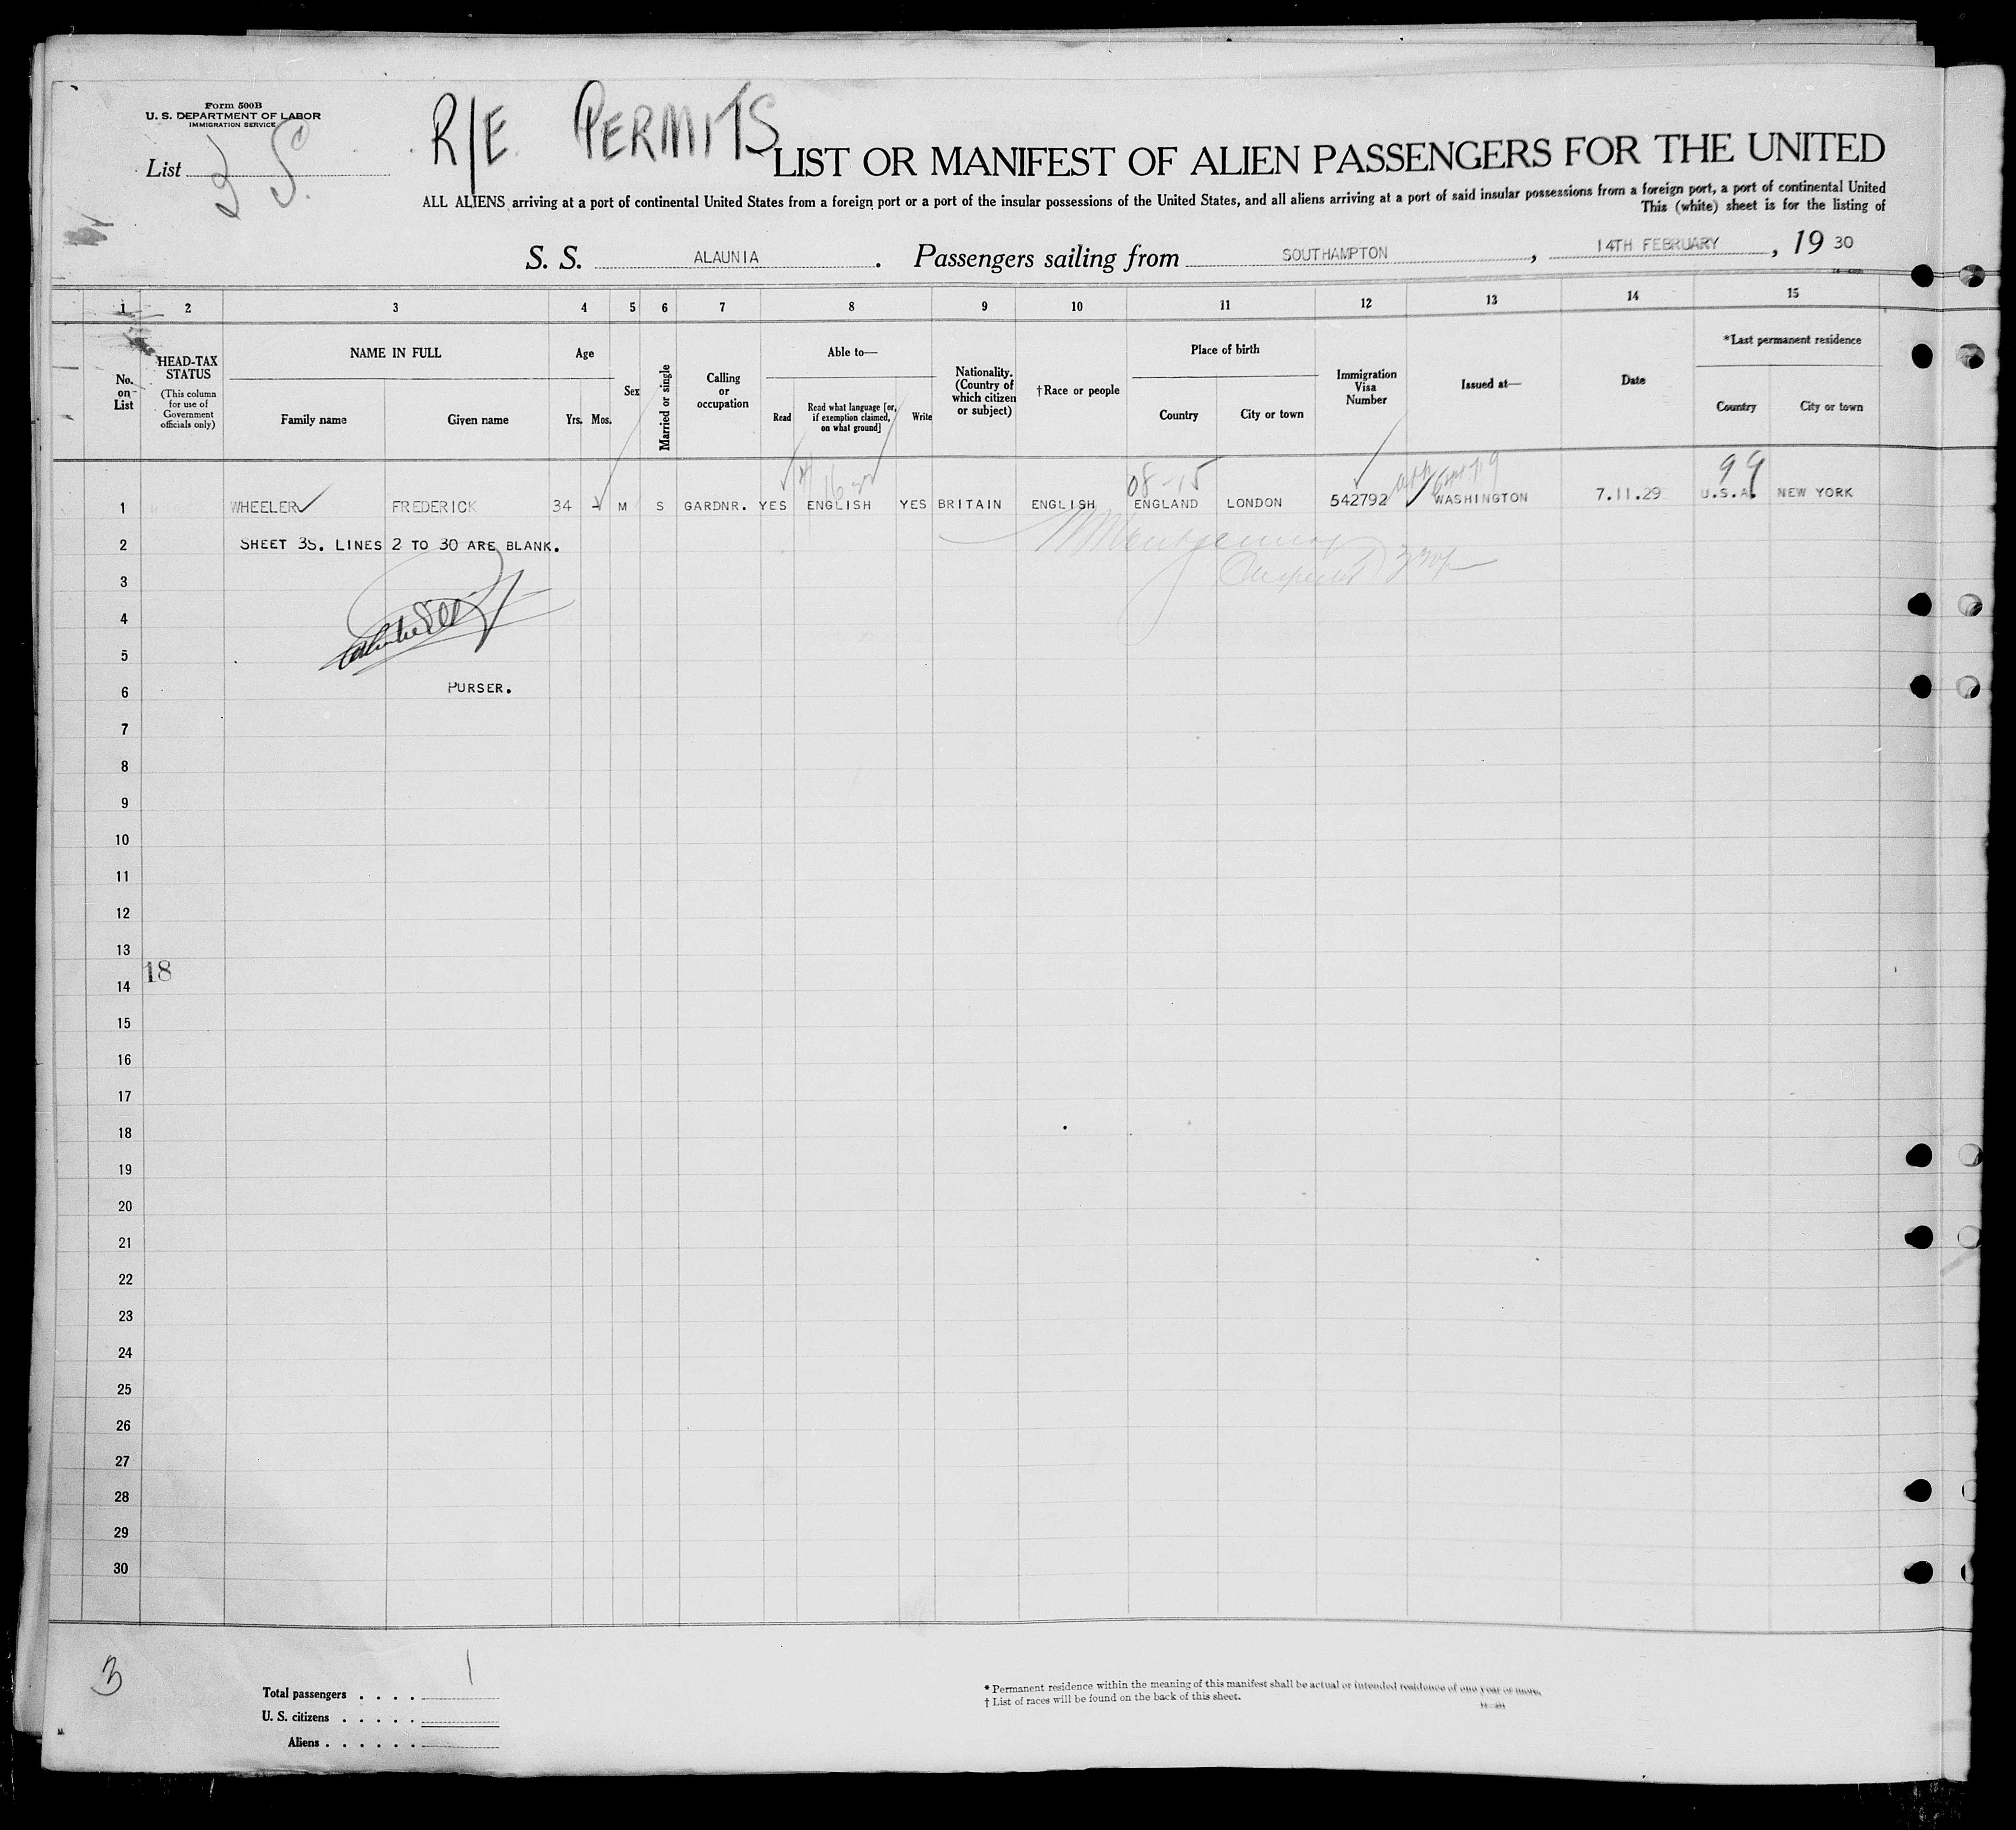 Form 500B
U. S. DEPARTMENT OF LABOR
IMMIGRATION SERVICE
List 3 S.
R/E PERMITS
LIST OR MANIFEST OF ALIEN PASSENGERS FOR THE UNITED
ALL ALIENS arriving at a port of continental United States from a foreign port or a port of the insular possessions of the United States, and all aliens arriving at a port of said insular possessions from a foreign port, a port of continental United
This (white) sheet is for the listing of
S. S. ALAUNIA. Passengers sailing from SOUTHAMPTON, 14TH FEBRUARY, 19 30
1 2 3 4 5 6 7 8 9 10 11 12 13 14 15
No. on List
HEAD-TAX STATUS
(This column for use of Government officials only)
NAME IN FULL
Family name Given name
Age
Yrs. Mos.
Sex
Married or single
Calling or occupation
Able to—
Read
Read what language [or, if exemption claimed, on what ground]
Write
Nationality. (Country of which citizen or subject)
†Race or people
Place of birth
Country City or town
Immigration Visa Number
Issued at—
Date
*Last permanent residence
Country City or town
08-15 99
1 WHEELER FREDERICK 34 M S GARDNR. YES ENGLISH YES BRITAIN ENGLISH ENGLAND LONDON 542792 WASHINGTON 7.11.29 U.S.A. NEW YORK
2 SHEET 3S. LINES 2 TO 30 ARE BLANK.
3
4
5
6 PURSER.
7
8
9
10
11
12
13
18
14
15
16
17
18
19
20
21
22
23
24
25
26
27
28
29
30
3
Total passengers . . . . 1
U. S. citizens . . . . .
Aliens . . . . . .
* Permanent residence within the meaning of this manifest shall be actual or intended residence of one year or more.
† List of races will be found on the back of this sheet.